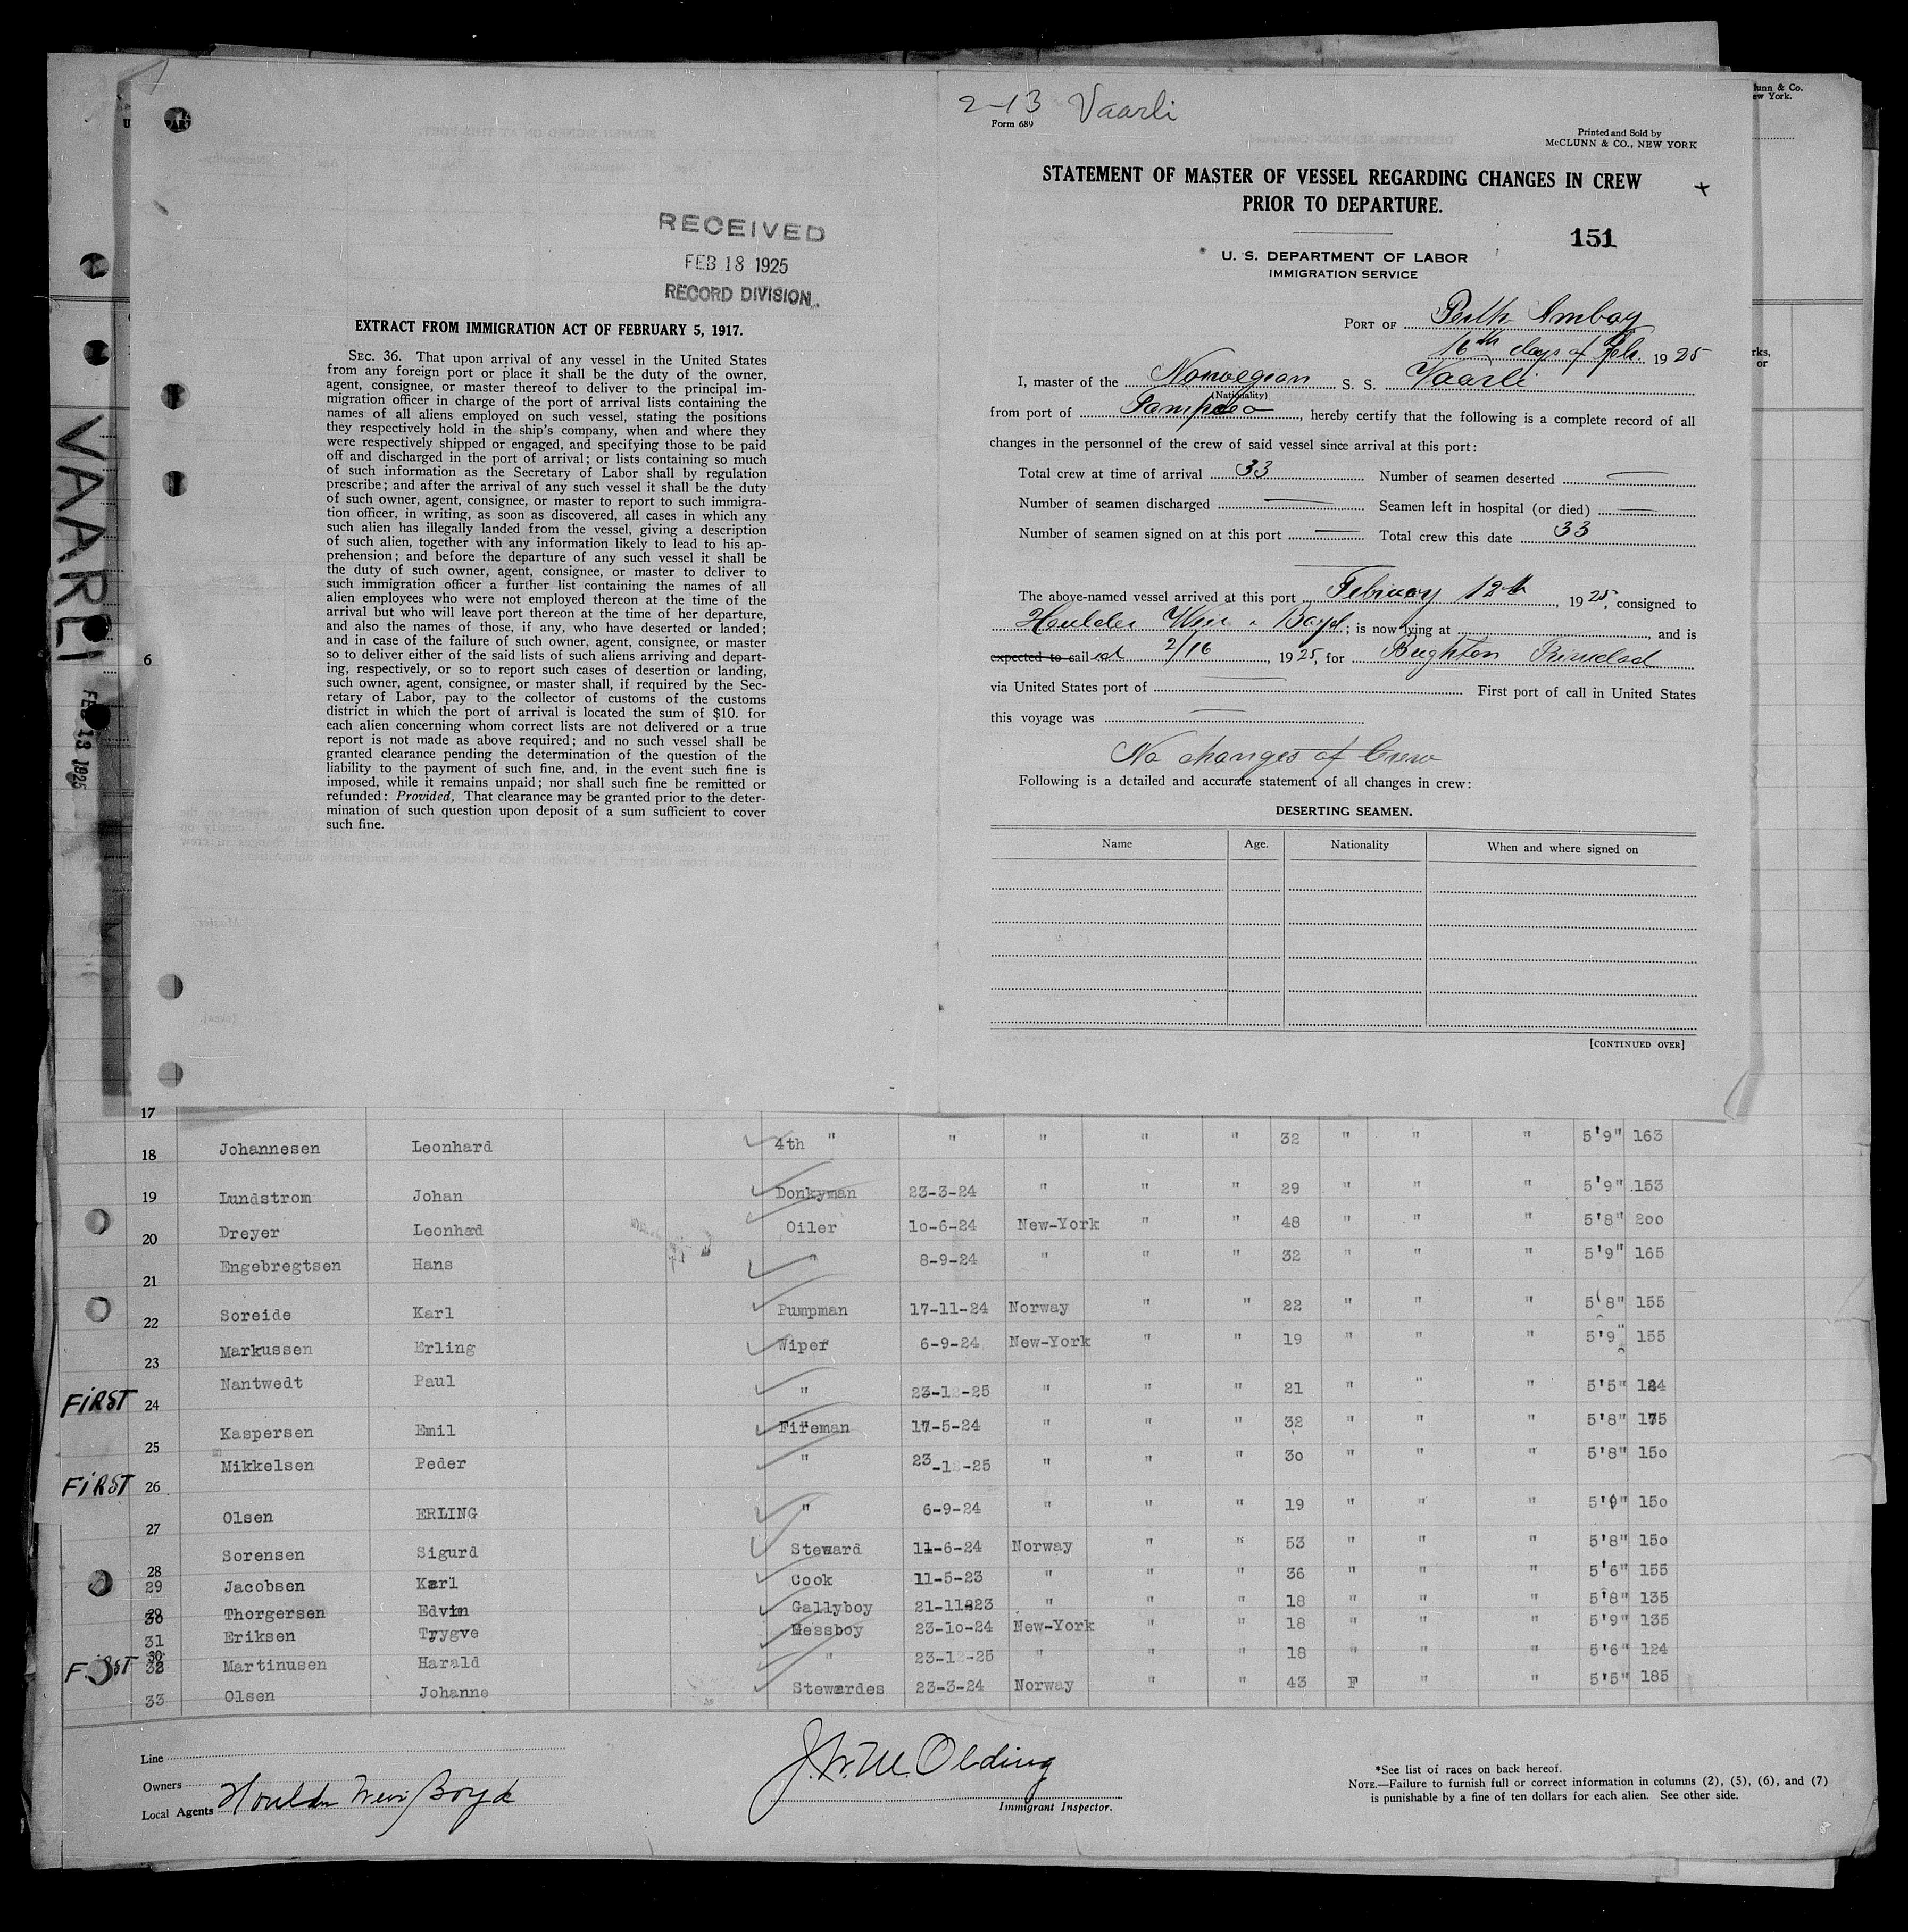 2-13 Vaarli
Form 689
Printed and Sold by
McCLUNN & CO., NEW YORK
STATEMENT OF MASTER OF VESSEL REGARDING CHANGES IN CREW
PRIOR TO DEPARTURE.
151
U. S. DEPARTMENT OF LABOR
IMMIGRATION SERVICE
PORT OF Perth Amboy
16th days of Feb. 1925
I, master of the Norwegian S. S. Vaarli
(Nationality)
from port of Tampico, hereby certify that the following is a complete record of all
changes in the personnel of the crew of said vessel since arrival at this port:
Total crew at time of arrival 33 Number of seamen deserted —
Number of seamen discharged — Seamen left in hospital (or died) —
Number of seamen signed on at this port — Total crew this date 33
The above-named vessel arrived at this port February 12th, 1925, consigned to
Houlder Weir & Boyd; is now lying at , and is
expected to sailed 2/16, 1925, for Brighton Trinidad
via United States port of — First port of call in United States
this voyage was —
No changes of Crew
Following is a detailed and accurate statement of all changes in crew:
DESERTING SEAMEN.
Name Age. Nationality When and where signed on
[CONTINUED OVER]
RECEIVED
FEB 18 1925
RECORD DIVISION.
EXTRACT FROM IMMIGRATION ACT OF FEBRUARY 5, 1917.
SEC. 36. That upon arrival of any vessel in the United States
from any foreign port or place it shall be the duty of the owner,
agent, consignee, or master thereof to deliver to the principal im-
migration officer in charge of the port of arrival lists containing the
names of all aliens employed on such vessel, stating the positions
they respectively hold in the ship's company, when and where they
were respectively shipped or engaged, and specifying those to be paid
off and discharged in the port of arrival; or lists containing so much
of such information as the Secretary of Labor shall by regulation
prescribe; and after the arrival of any such vessel it shall be the duty
of such owner, agent, consignee, or master to report to such immigra-
tion officer, in writing, as soon as discovered, all cases in which any
such alien has illegally landed from the vessel, giving a description
of such alien, together with any information likely to lead to his ap-
prehension; and before the departure of any such vessel it shall be
the duty of such owner, agent, consignee, or master to deliver to
such immigration officer a further list containing the names of all
alien employees who were not employed thereon at the time of the
arrival but who will leave port thereon at the time of her departure,
and also the names of those, if any, who have deserted or landed;
and in case of the failure of such owner, agent, consignee, or master
so to deliver either of the said lists of such aliens arriving and depart-
ing, respectively, or so to report such cases of desertion or landing,
such owner, agent, consignee, or master shall, if required by the Sec-
retary of Labor, pay to the collector of customs of the customs
district in which the port of arrival is located the sum of $10. for
each alien concerning whom correct lists are not delivered or a true
report is not made as above required; and no such vessel shall be
granted clearance pending the determination of the question of the
liability to the payment of such fine, and, in the event such fine is
imposed, while it remains unpaid; nor shall such fine be remitted or
refunded: Provided, That clearance may be granted prior to the deter-
mination of such question upon deposit of a sum sufficient to cover
such fine.
VAARLI
FEB 13 1925
6
17
18 Johannesen Leonhard 4th " " " " " 32 " " " 5'9" 163
19 Lundstrom Johan Donkyman 23-3-24 " " " 29 " " " 5'9" 153
20 Dreyer Leonhard Oiler 10-6-24 New-York " " 48 " " " 5'8" 200
21 Engebregtsen Hans " 8-9-24 " " " 32 " " " 5'9" 165
22 Soreide Karl Pumpman 17-11-24 Norway " " 22 " " " 5'8" 155
23 Markussen Erling Wiper 6-9-24 New-York " " 19 " " " 5'9" 155
FIRST 24 Nantwedt Paul " 23-12-25 " " " 21 " " " 5'5" 124
25 Kaspersen Emil Fireman 17-5-24 " " " 32 " " " 5'8" 175
FIRST 26 Mikkelsen Peder " 23-12-25 " " " 30 " " " 5'8" 150
27 Olsen ERLING " 6-9-24 " " " 19 " " " 150
28 Sorensen Sigurd Steward 11-6-24 Norway " " 53 " " " 5'8" 150
29 Jacobsen Karl Cook 11-5-23 " " " 36 " " " 5'6" 155
30 Thorgersen Edvin Gallyboy 21-11-23 " " " 18 " " " 5'8" 135
31 Eriksen Trygve Messboy 23-10-24 New-York " " 18 " " " 5'9" 135
FIRST 32 Martinusen Harald " 23-12-25 " " " 18 " " " 5'6" 124
33 Olsen Johanne Stewerdes 23-3-24 Norway " " 43 F " " 5'5" 185
Line
Owners
Local Agents Houlder Weir Boyd
J. W. M. Olding
Immigrant Inspector.
*See list of races on back hereof.
NOTE.—Failure to furnish full or correct information in columns (2), (5), (6), and (7)
is punishable by a fine of ten dollars for each alien. See other side.